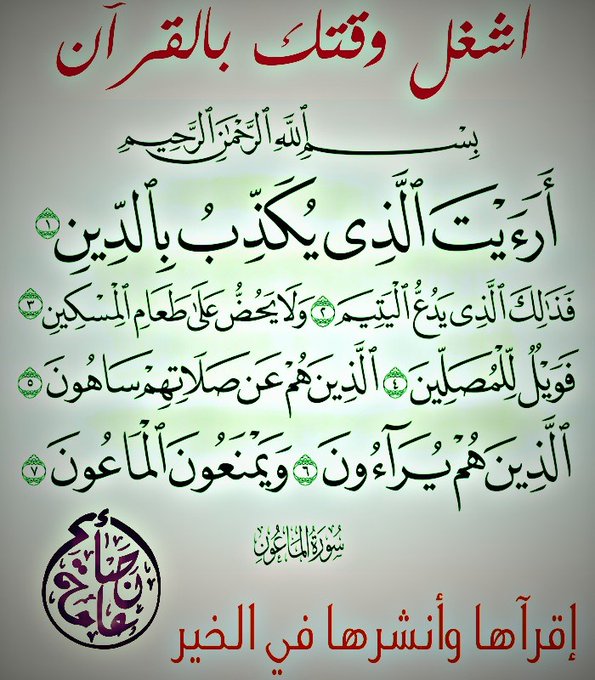 اشغل وقتك بالقرآن
بِسْمِ ٱللَّهِ ٱلرَّحْمَٰنِ ٱلرَّحِيمِ
أَرَءَيْتَ ٱلَّذِى يُكَذِّبُ بِٱلدِّينِ ١
فَذَٰلِكَ ٱلَّذِى يَدُعُّ ٱلْيَتِيمَ ٢ وَلَا يَحُضُّ عَلَىٰ طَعَامِ ٱلْمِسْكِينِ ٣
فَوَيْلٌ لِّلْمُصَلِّينَ ٤ ٱلَّذِينَ هُمْ عَن صَلَاتِهِمْ سَاهُونَ ٥
ٱلَّذِينَ هُمْ يُرَآءُونَ ٦ وَيَمْنَعُونَ ٱلْمَاعُونَ ٧
سُورَةُ المَاعُونِ
إقرآها وأنشرها في الخير